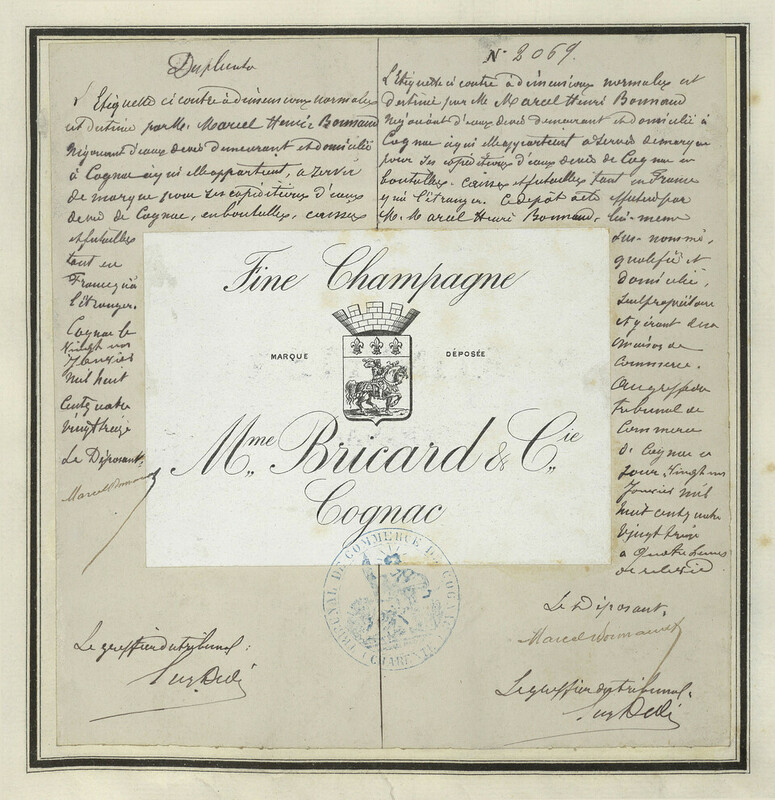 Duplicata
L'Etiquette ci contre à dimensions normales
est destinée par M. Marcel Henri Bonnaud
Négociant d'eaux devie demeurant et domicilié
à Cognac à qui elle appartient, à servir
de marque pour ses expéditions d'eaux
devie de Cognac, en bouteilles, caisses
et futailles
tant en
France qu'à
l'étranger.
Cognac le
Vingt
Janvier
Mil huit
Cent quatre
Vingt treize
Le Déposant,
Marcel Bonnaud
Le greffier du tribunal:
N° 2069.
L'Etiquette ci contre à dimensions normales est
destinée par Mr Marcel Henri Bonnaud
Négociant d'eaux devie demeurant et domicilié à
Cognac à qui elle appartient à servir de marque
pour ses expéditions d'eaux devie de Cognac en
bouteilles, caisses et futailles tant en France
qu'à l'étranger. Ce dépôt a été effectué par
M. Marcel Henri Bonnaud, lui-même
sus-nommé,
qualifié et
domicilié,
seul propriétaire
et gérant de sa
maison de
Commerce.
Au greffe du
tribunal de
Commerce
de Cognac ce
jour, Vingt
Janvier mil
huit cent quatre
Vingt treize
à quatre heures
de relevée
Le Déposant,
Marcel Bonnaud
Le greffier du tribunal.
Fine Champagne
MARQUE DÉPOSÉE
Mme Bricard & Cie
Cognac
TRIBUNAL DE COMMERCE DE COGNAC
CHARENTE